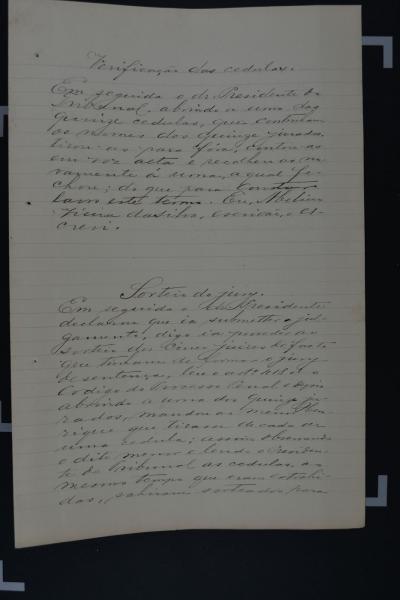 Verificação das cedulas.
Em seguida o dr. Presidente do
Tribunal, abrindo a urna das
quinze cedulas, que continham
os nomes dos quinze jurados,
tirou-as para fóra, contou-as
em voz alta e recolheu-as no-
vamente á urna, a qual fe-
chou; do que para constar
lavro este termo. Eu,
Vieira da Silva, escrivão, o es-
crevi.
Sorteio do jury.
Em seguida o Presidente
declarou que ia submetter a jul-
gamento, digo ia proceder ao
sorteio dos cinco juizes de facto
que tinham de formar o jury
de sentença, leu o art.
Codigo do Processo Penal e depois
abrindo a urna dos quinze ju-
rados, mandou ao menor Hen-
rique que tirasse de cada vez
uma cedula; assim observando
o dito menor e lendo o Presiden-
te do Tribunal as cedulas, ao
mesmo tempo que eram extrahi-
das, sahiram sorteados para